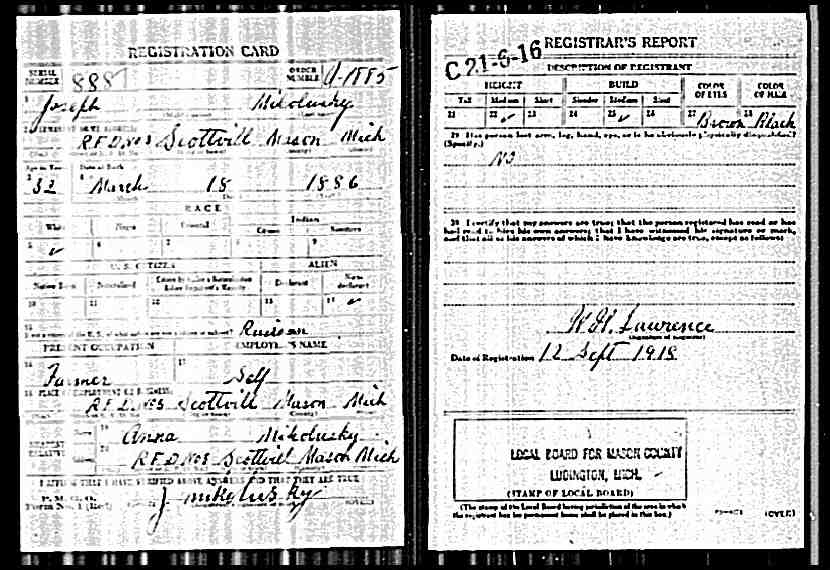 REGISTRATION CARD
SERIAL NUMBER 888
ORDER NUMBER A-1885
1 Joseph Mikolusky
R.F.D. No 5 Scottvill Mason Mich
Age in Years Date of Birth
32 March 18 1886
RACE
White Negro Oriental Indian
Citizen Noncitizen
5 ✓ 6 7 8 9
U. S. CITIZEN ALIEN
Native Born Naturalized Declarant Non-declarant
10 11 12 13 14 ✓
15
Russian
PRESENT OCCUPATION EMPLOYER'S NAME
16 17
Farmer Self
18 PLACE OF EMPLOYMENT OR BUSINESS
R.F.D. No 5 Scottvill Mason Mich
NEAREST RELATIVE
Name 19 Anna Mikolusky
20 R.F.D. No 5 Scottvill Mason Mich
I AFFIRM THAT I HAVE VERIFIED ABOVE ANSWERS AND THAT THEY ARE TRUE
P. M. G. O.
Form No. 1 (Red)
J mikolusky
REGISTRAR'S REPORT
C 21-6-16
DESCRIPTION OF REGISTRANT
HEIGHT BUILD COLOR OF EYES COLOR OF HAIR
Tall Medium Short Slender Medium Stout
21 22 ✓ 23 24 25 ✓ 26 27 Brown 28 Black
29 Has person lost arm, leg, hand, eye, or is he obviously physically disqualified?
(Specify.)
No
30 I certify that my answers are true; that the person registered has read or has
had read to him his own answers; that I have witnessed his signature or mark,
and that all of his answers of which I have knowledge are true, except as follows:
W. H. Lawrence
(Signature of Registrar)
Date of Registration 12 Sept 1918
LOCAL BOARD FOR MASON COUNTY
LUDINGTON, MICH.
(STAMP OF LOCAL BOARD)
(The stamp of the Local Board having jurisdiction of the area in which
the registrant has his permanent home shall be placed in this box.)
(OVER)